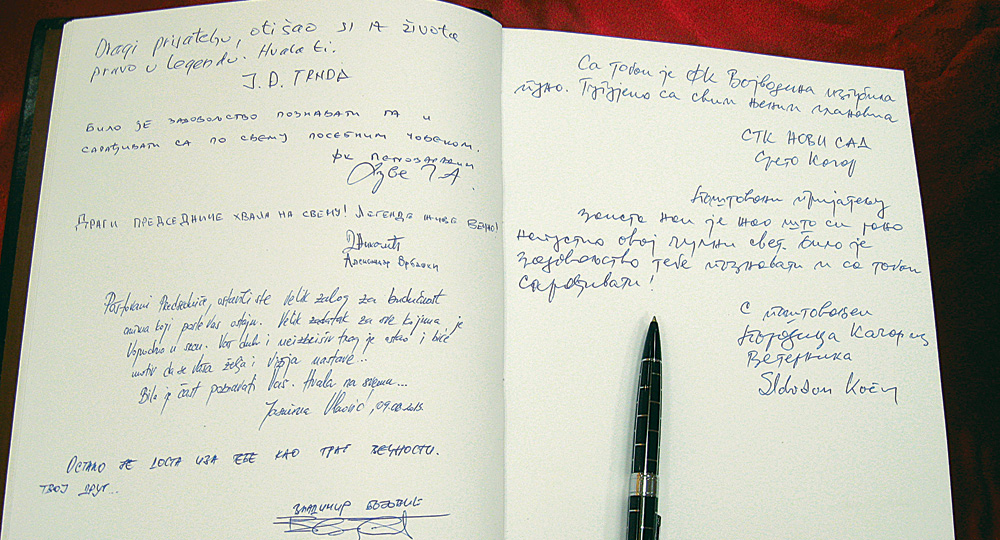 Dragi prijatelju, otišao si iz života
pravo u legendu. Hvala ti.
J. D. TRNDA
БИЛО ЈЕ ЗАДОВОЉСТВО ПОЗНАВАТИ ГА И
САРАЂИВАТИ СА ПО СВЕМУ ПОСЕБНИМ ЧОВЕКОМ.
ФК ПЕТРОВАРАДИН
ДРАГИ ПРЕДСЕДНИЧЕ ХВАЛА НА СВЕМУ! ЛЕГЕНДА ЖИВИ ВЕЧНО!
Александар
Poštovani Predsedniče, ostavili ste velik zalog za budućnost
onima koji posle Vas ostaju. Velik zadatak za sve kojima je
Vojvodina u srcu. Vaš duh i neizbrisiv trag je ostao i biće
motiv da se Vaša želja i vizija nastave...
Bila je čast poznavati Vas. Hvala na svemu...
Jasmina
ОСТАЛО ЈЕ ДОСТА ИЗА ТЕБЕ КАО ТРАГ ВЕЧНОСТИ.
ТВОЈ ДРУГ...
ВЛАДИМИР
Са тобом је ФК Војводина изгубила
пуно. Тугујемо са свим њеним члановима
СТК НОВИ САД
Срето Качар
Поштовани пријатељу
Заиста нам је жао што си рано
напустио овај чудни свет. Било је
задовољство тебе познавати и са тобом
сарађивати!
С поштовањем
Породица Качар из
Ветерника